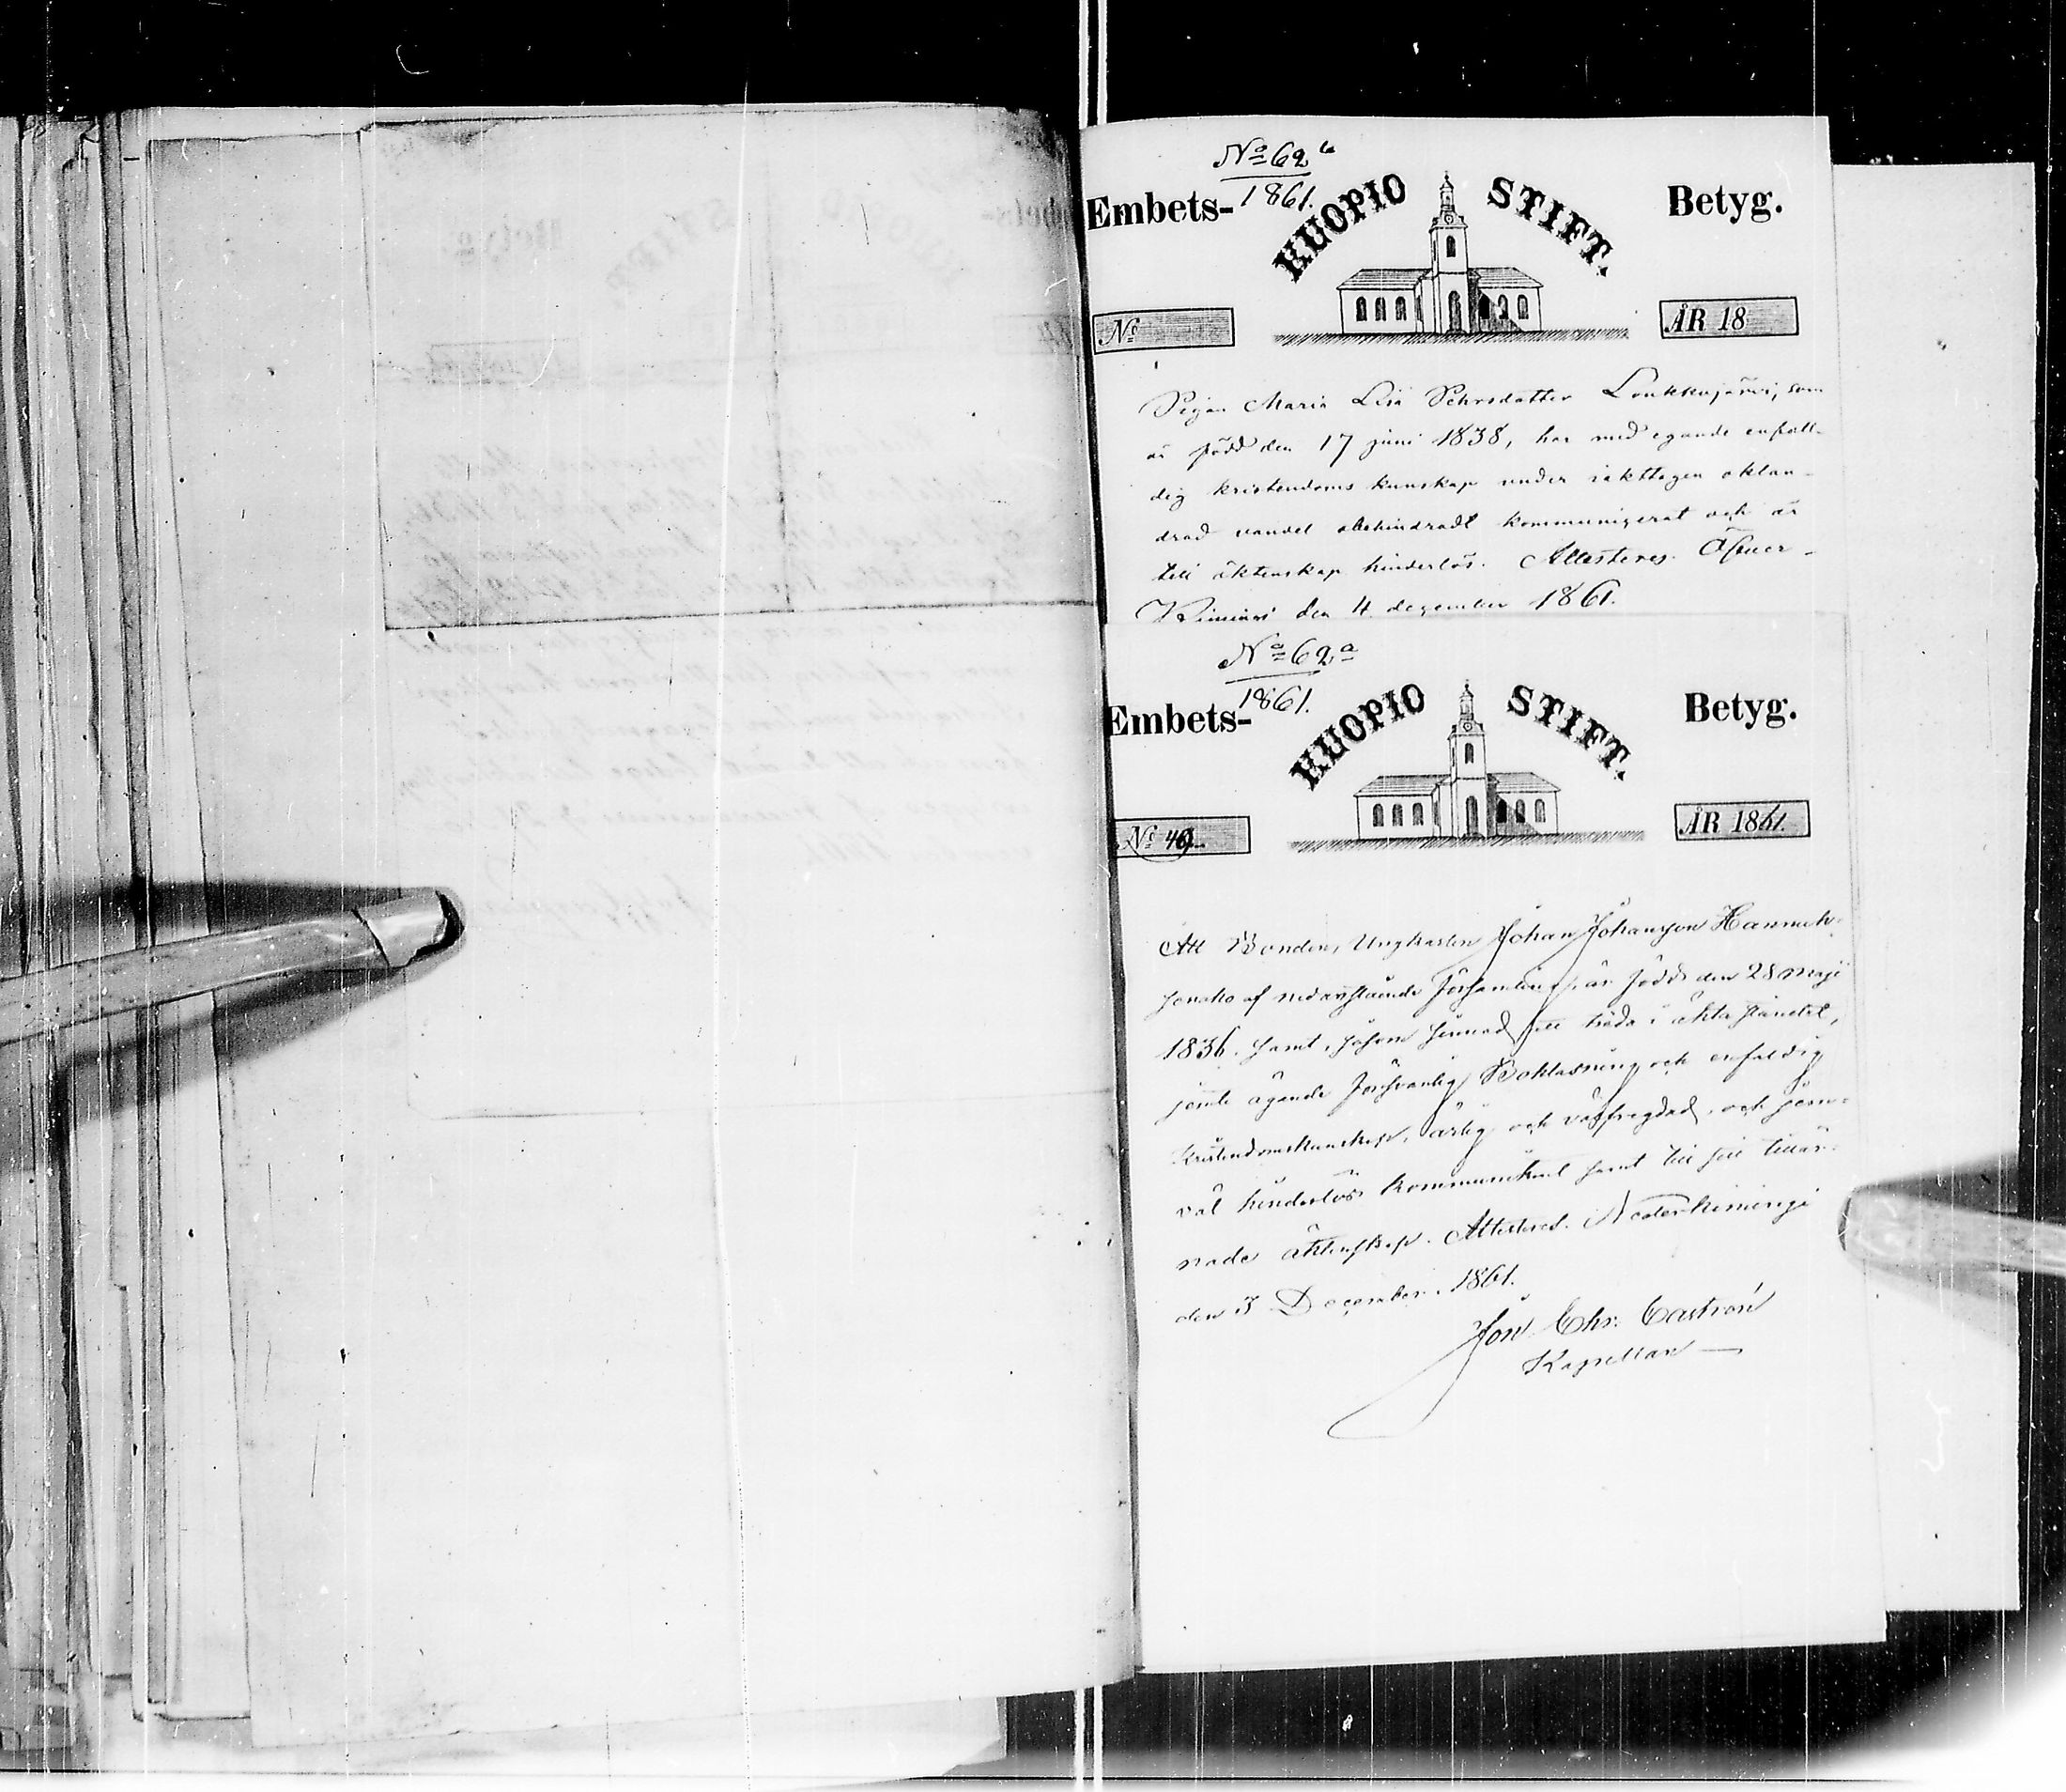 No 62 b
1861.
Embets- KUOPIO STIFT. Betyg.
No ÅR 18
Pigan Maria Lisa Pehrsdotter Loukkojärvi, som
är född den 17 juni 1838, har med egande enfall-
dig kristendoms kunskap under iakttagen oklan-
drad vandel obehindradt kommunigerat och är
till äktenskap hinderlös. Attesteres. Öfver-
Kiminki den 4 december 1861.
No 62 a
1861.
Embets- KUOPIO STIFT. Betyg.
No 40 ÅR 1861.
Att Bonden, Ungkarlen Johan Johansson Hannuk-
af nedanstående församling, är född den 28 Maji
1836. samt, såsom sinnad att träda i äkta ståndet,
jemte ägande försvarlig Bokläsning och enfaldig
Kristendomskunskap, ärlig och välfregdad, och jem-
väl hinderlös kommunikant samt till sitt tillär-
nade äktenskap. Attesteres. Nederkiminge
den 3 December 1861.
Joh. Chr. Castrén
Kapellan